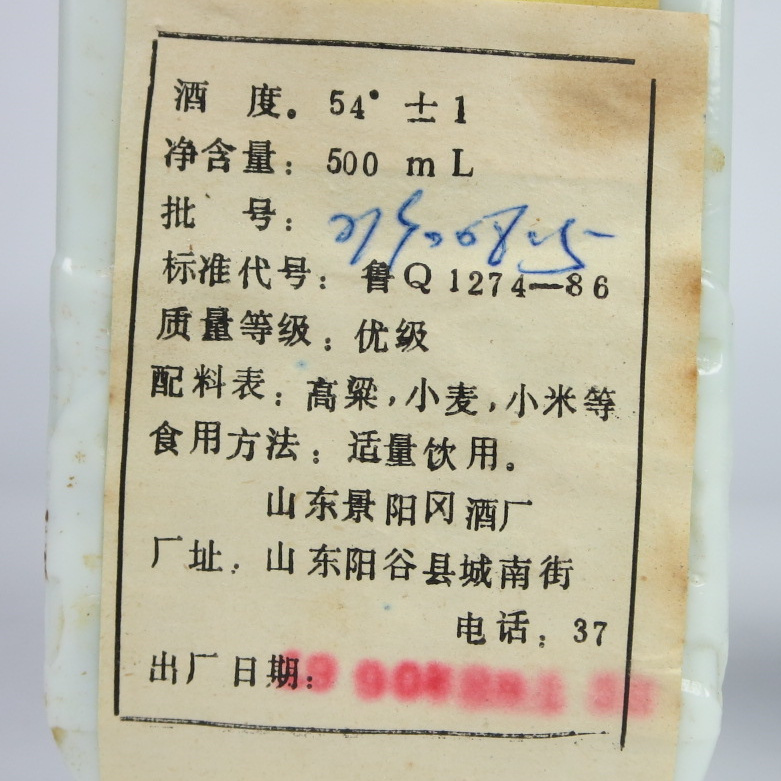 酒 度。54° ±1
净含量：500 mL
批 号：
标准代号：鲁Q 1274—86
质量等级：优级
配料表：高粱，小麦，小米等
食用方法：适量饮用。
山东景阳冈酒厂
厂址：山东阳谷县城南街
电话：37
出厂日期：